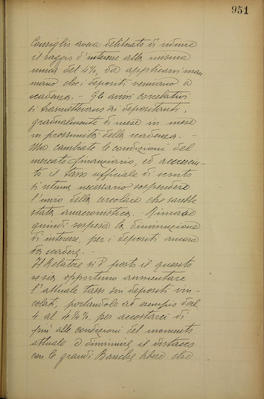 951
Consiglio aveva deliberato di ridurre
il saggio d'interesse alla misura
unica del 4%, da applicarsi man
mano che i depositi venivano a
scadenza. - Gli avvisi correlativi
si trasmettevano ai depositanti,
gradualmente di mese in mese
in prossimità della scadenza. -
Ma cambiate le condizioni del
mercato finanziario, ed
il tasso ufficiale di sconto
si ritiene necessario sospendere
l'invio della circolare che sarebbe
stata anacronistica. Rimane
quindi sospesa la diminuzione
di interesse, per i depositi ancora
da scadere.
Il Relatore si è posto il quesito
se sia opportuno aumentare
l'attuale tasso sui depositi vin-
colati, portandolo ad esempio dal
4 al 4¼% per accostarci di
più alle condizioni del momento
attuale e diminuire il distacco
con le grandi Banche libere che